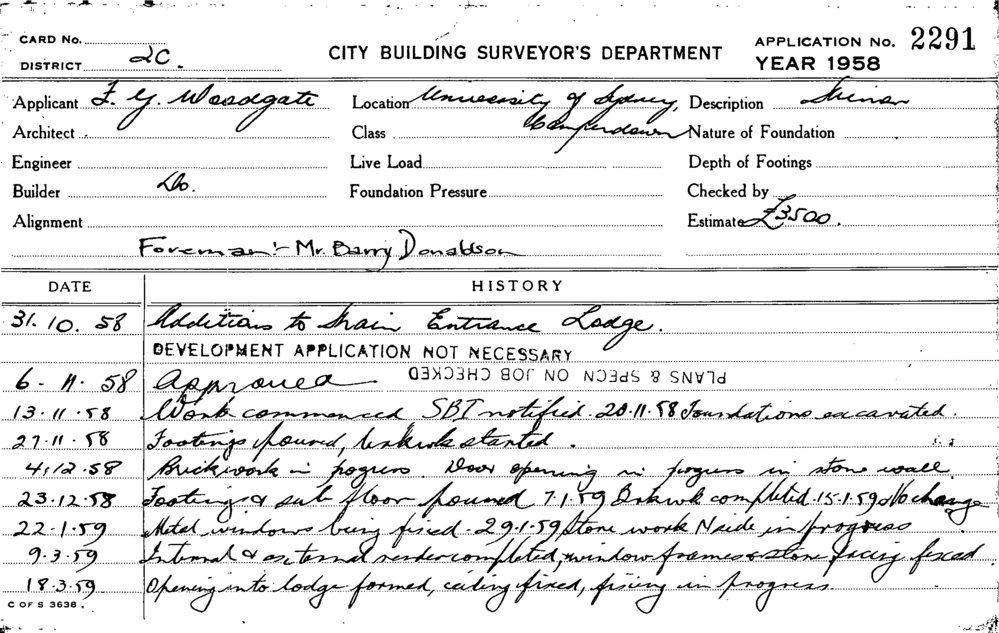 CARD No.
DISTRICT 2C.
CITY BUILDING SURVEYOR'S DEPARTMENT
APPLICATION No. 2291
YEAR 1958
Applicant F. G. Woodgate
Location University of Sydney, Camperdown
Description
Architect
Class
Nature of Foundation
Engineer
Live Load
Depth of Footings
Builder Do.
Foundation Pressure
Checked by
Alignment
Estimate £3500.
Foreman:- Mr. Barry Donaldson
DATE HISTORY
31.10.58 Additions to Main Entrance Lodge.
DEVELOPMENT APPLICATION NOT NECESSARY
6-11-58 Approved PLANS & SPECN ON JOB CHECKED
13-11-58 Work commenced SBI notified. 20.11.58 Foundations excavated.
27-11-58 Footings poured, brickwk started.
4.12.58 Brickwork in progress. Door opening in progress in stone wall
23-12-58 Footings & sub floor poured 7.1.59 Brkwk completed. 15.1.59 No change
22-1-59 Metal windows being fixed. 29.1.59 Stone work N side in progress
9.3.59 Internal & external render completed, window frames & stone facing fixed
18.3.59 Opening into lodge formed, ceiling fixed, fixing in progress.
C OF S 3638.